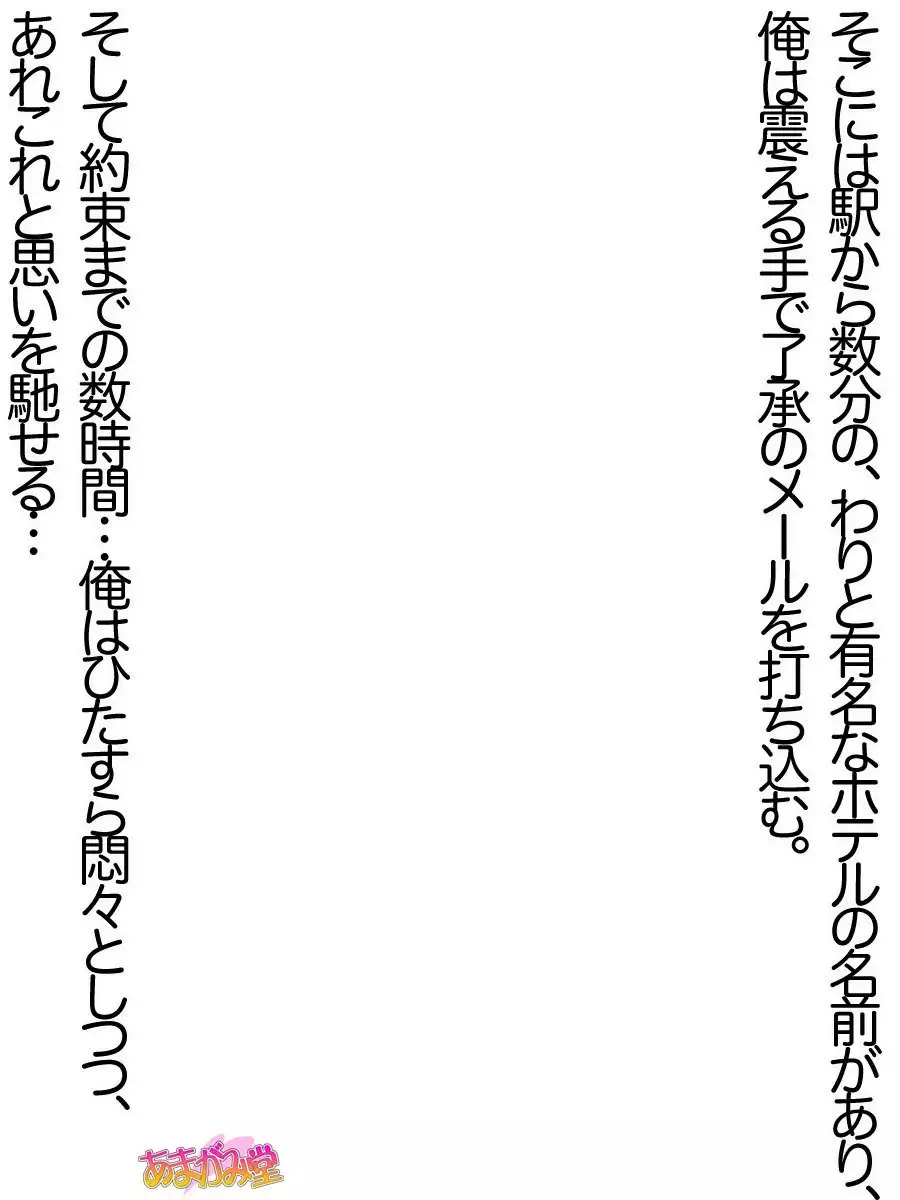 そこには駅から数分の、わりと有名なホテルの名前があり、
俺は震える手で了承のメールを打ち込む。
そして約束までの数時間…俺はひたすら悶々としつつ、
あれこれと思いを馳せる…
あまがみ堂